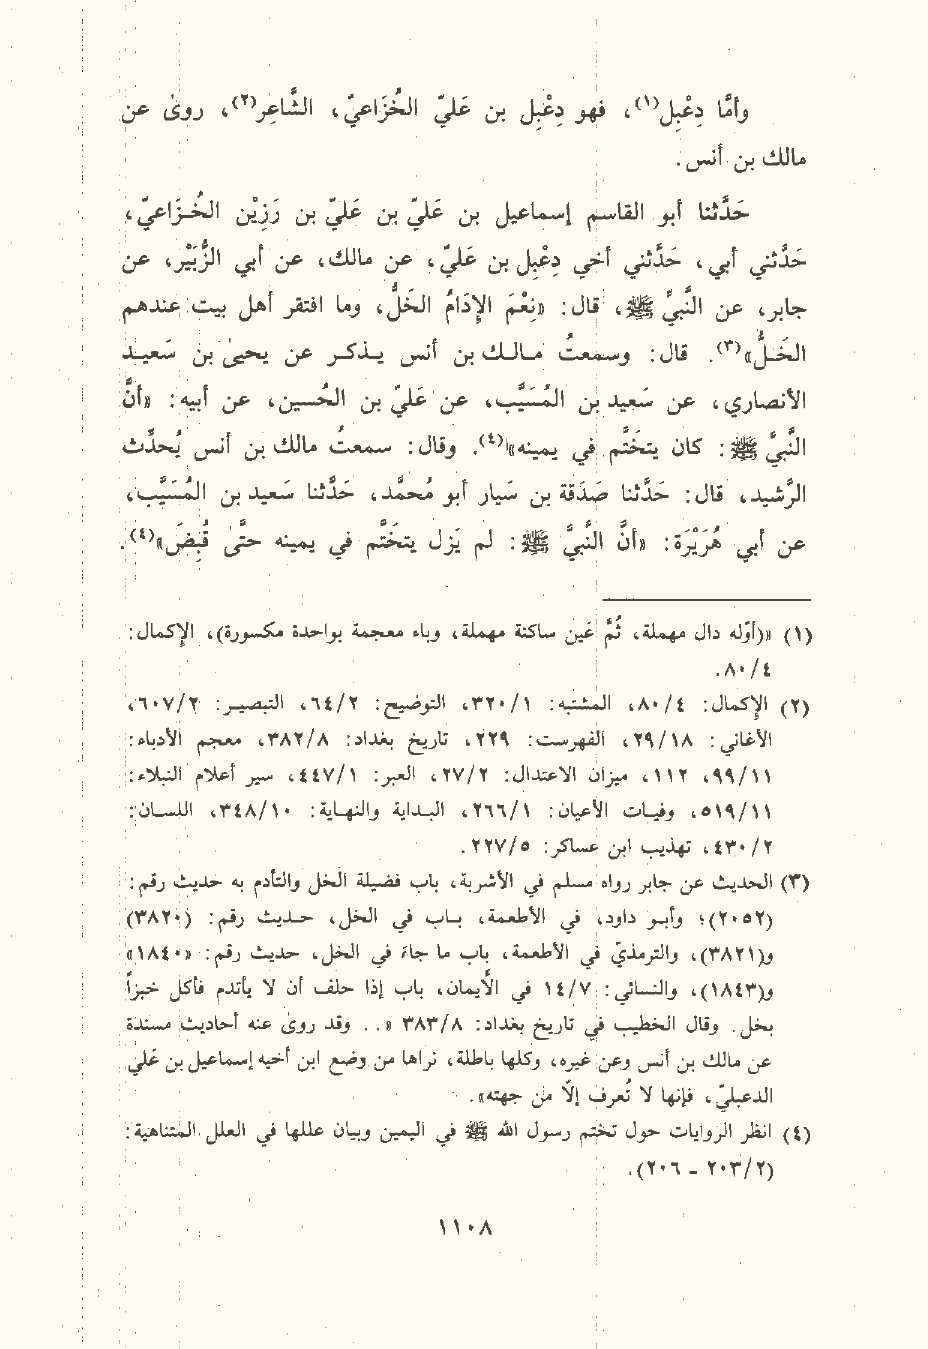 وأمَّا دِعْبِل(١)، فهو دِعْبِل بن عَليّ الخُزَاعيّ، الشَّاعِر(٢)، روىٰ عن
مالك بن أنس.
حَدَّثنا أبو القاسم إسماعيل بن عَليّ بن عَليّ بن رَزِيْن الخُـزَاعيّ،
حَدَّثني أبي، حَدَّثني أخي دِعْبِل بن عَليّ، عن مالك، عن أبي الزُّبَيْر، عن
جابر، عن النَّبيِّ ﷺ، قال: «نِعْمَ الإدَامُ الخَلُّ، وما افتقر أهل بيت عندهم
الخَـلُّ»(٣). قال: وسمعتُ مـالـك بن أنس يـذكـر عن يحيىٰ بن سَعيـد
الأنصاري، عن سَعيد بن المُسَيَّب، عن عَليّ بن الحُسين، عن أبيه: «أنَّ
النَّبيَّ ﷺ: كان يتخَتَّم في يمينه»(٤). وقال: سمعتُ مالك بن أنس يُحدِّث
الرَّشيد، قال: حَدَّثنا صَدَقة بن سَيار أبو مُحمَّد، حَدَّثنا سَعيد بن المُسَيَّب،
عن أبي هُرَيْرَة: «أنَّ النَّبيَّ ﷺ: لم يَزل يتخَتَّم في يمينه حتَّىٰ قُبِضَ»(٤).
(١) «(أوّله دال مهملة، ثُمَّ عَين ساكنة مهملة، وباء معجمة بواحدة مكسورة)، الإكمال:
٤/٨٠.
(٢) الإكمال: ٤/٨٠، المشتبه: ١/٣٢٠، التوضيح: ٢/٦٤، التبصيـر: ٢/٦٠٧،
الأغاني: ١٨/٢٩، الفهرست: ٢٢٩، تاريخ بغداد: ٨/٣٨٢، معجم الأدباء:
١١/٩٩، ١١٢، ميزان الاعتدال: ٢/٢٧، العبر: ١/٤٤٧، سير أعلام النبلاء:
١١/٥١٩، وفيـات الأعيان: ١/٢٦٦، البـداية والنهـاية: ١٠/٣٤٨، اللسـان:
٢/٤٣٠، تهذيب ابن عساكر: ٥/٢٢٧.
(٣) الحديث عن جابر رواه مسلم في الأشربة، باب فضيلة الخل والتأدم به حديث رقم:
(٢٠٥٢)؛ وأبـو داود، في الأطعمة، بـاب في الخل، حـديث رقم: (٣٨٢٠)
و(٣٨٢١)، والترمذيّ في الأطعمة، باب ما جاءَ في الخل، حديث رقم: «١٨٤٠»
و(١٨٤٣)، والنسائي: ٧/١٤ في الأيمان، باب إذا حلف أن لا يأتدم فأكل خبزاً
بخل. وقال الخطيب في تاريخ بغداد: ٨/٣٨٣ «. . وقد روىٰ عنه أحاديث مسندة
عن مالك بن أنس وعن غيره، وكلها باطلة، نراها من وضع ابن أخيه إسماعيل بن عَلي
الدعبليّ، فإنها لا تُعرف إلاّ من جهته».
(٤) انظر الروايات حول تختم رسول الله ﷺ في اليمين وبيان عللها في العلل المتناهية:
(٢/٢٠٣ - ٢٠٦).
١١٠٨